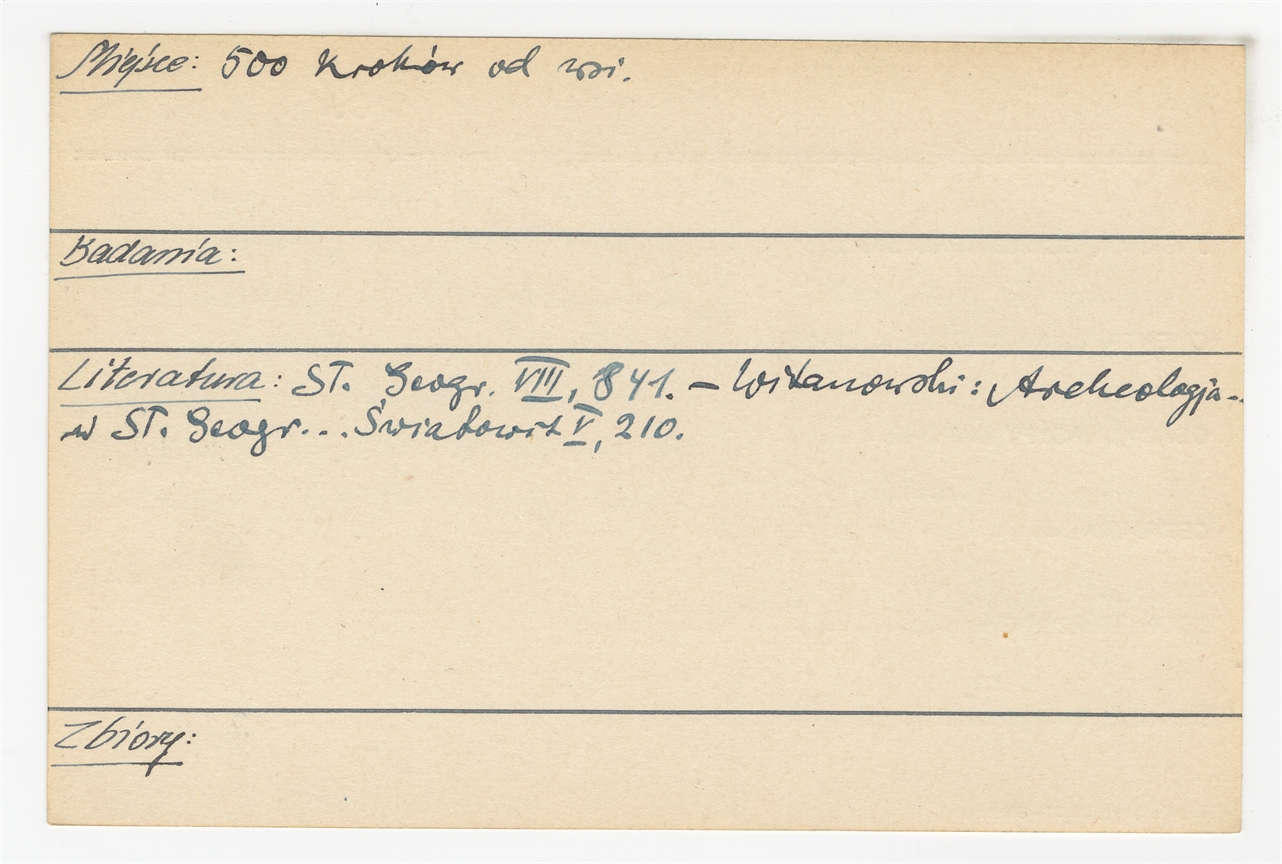 Miejsce: 500 kroków od wsi.
Badania:
Literatura: Sł. Geogr. VIII, 841. – Witanowski: Archeologja..
w Sł. Geogr... Światowit V, 210.
Zbiory: